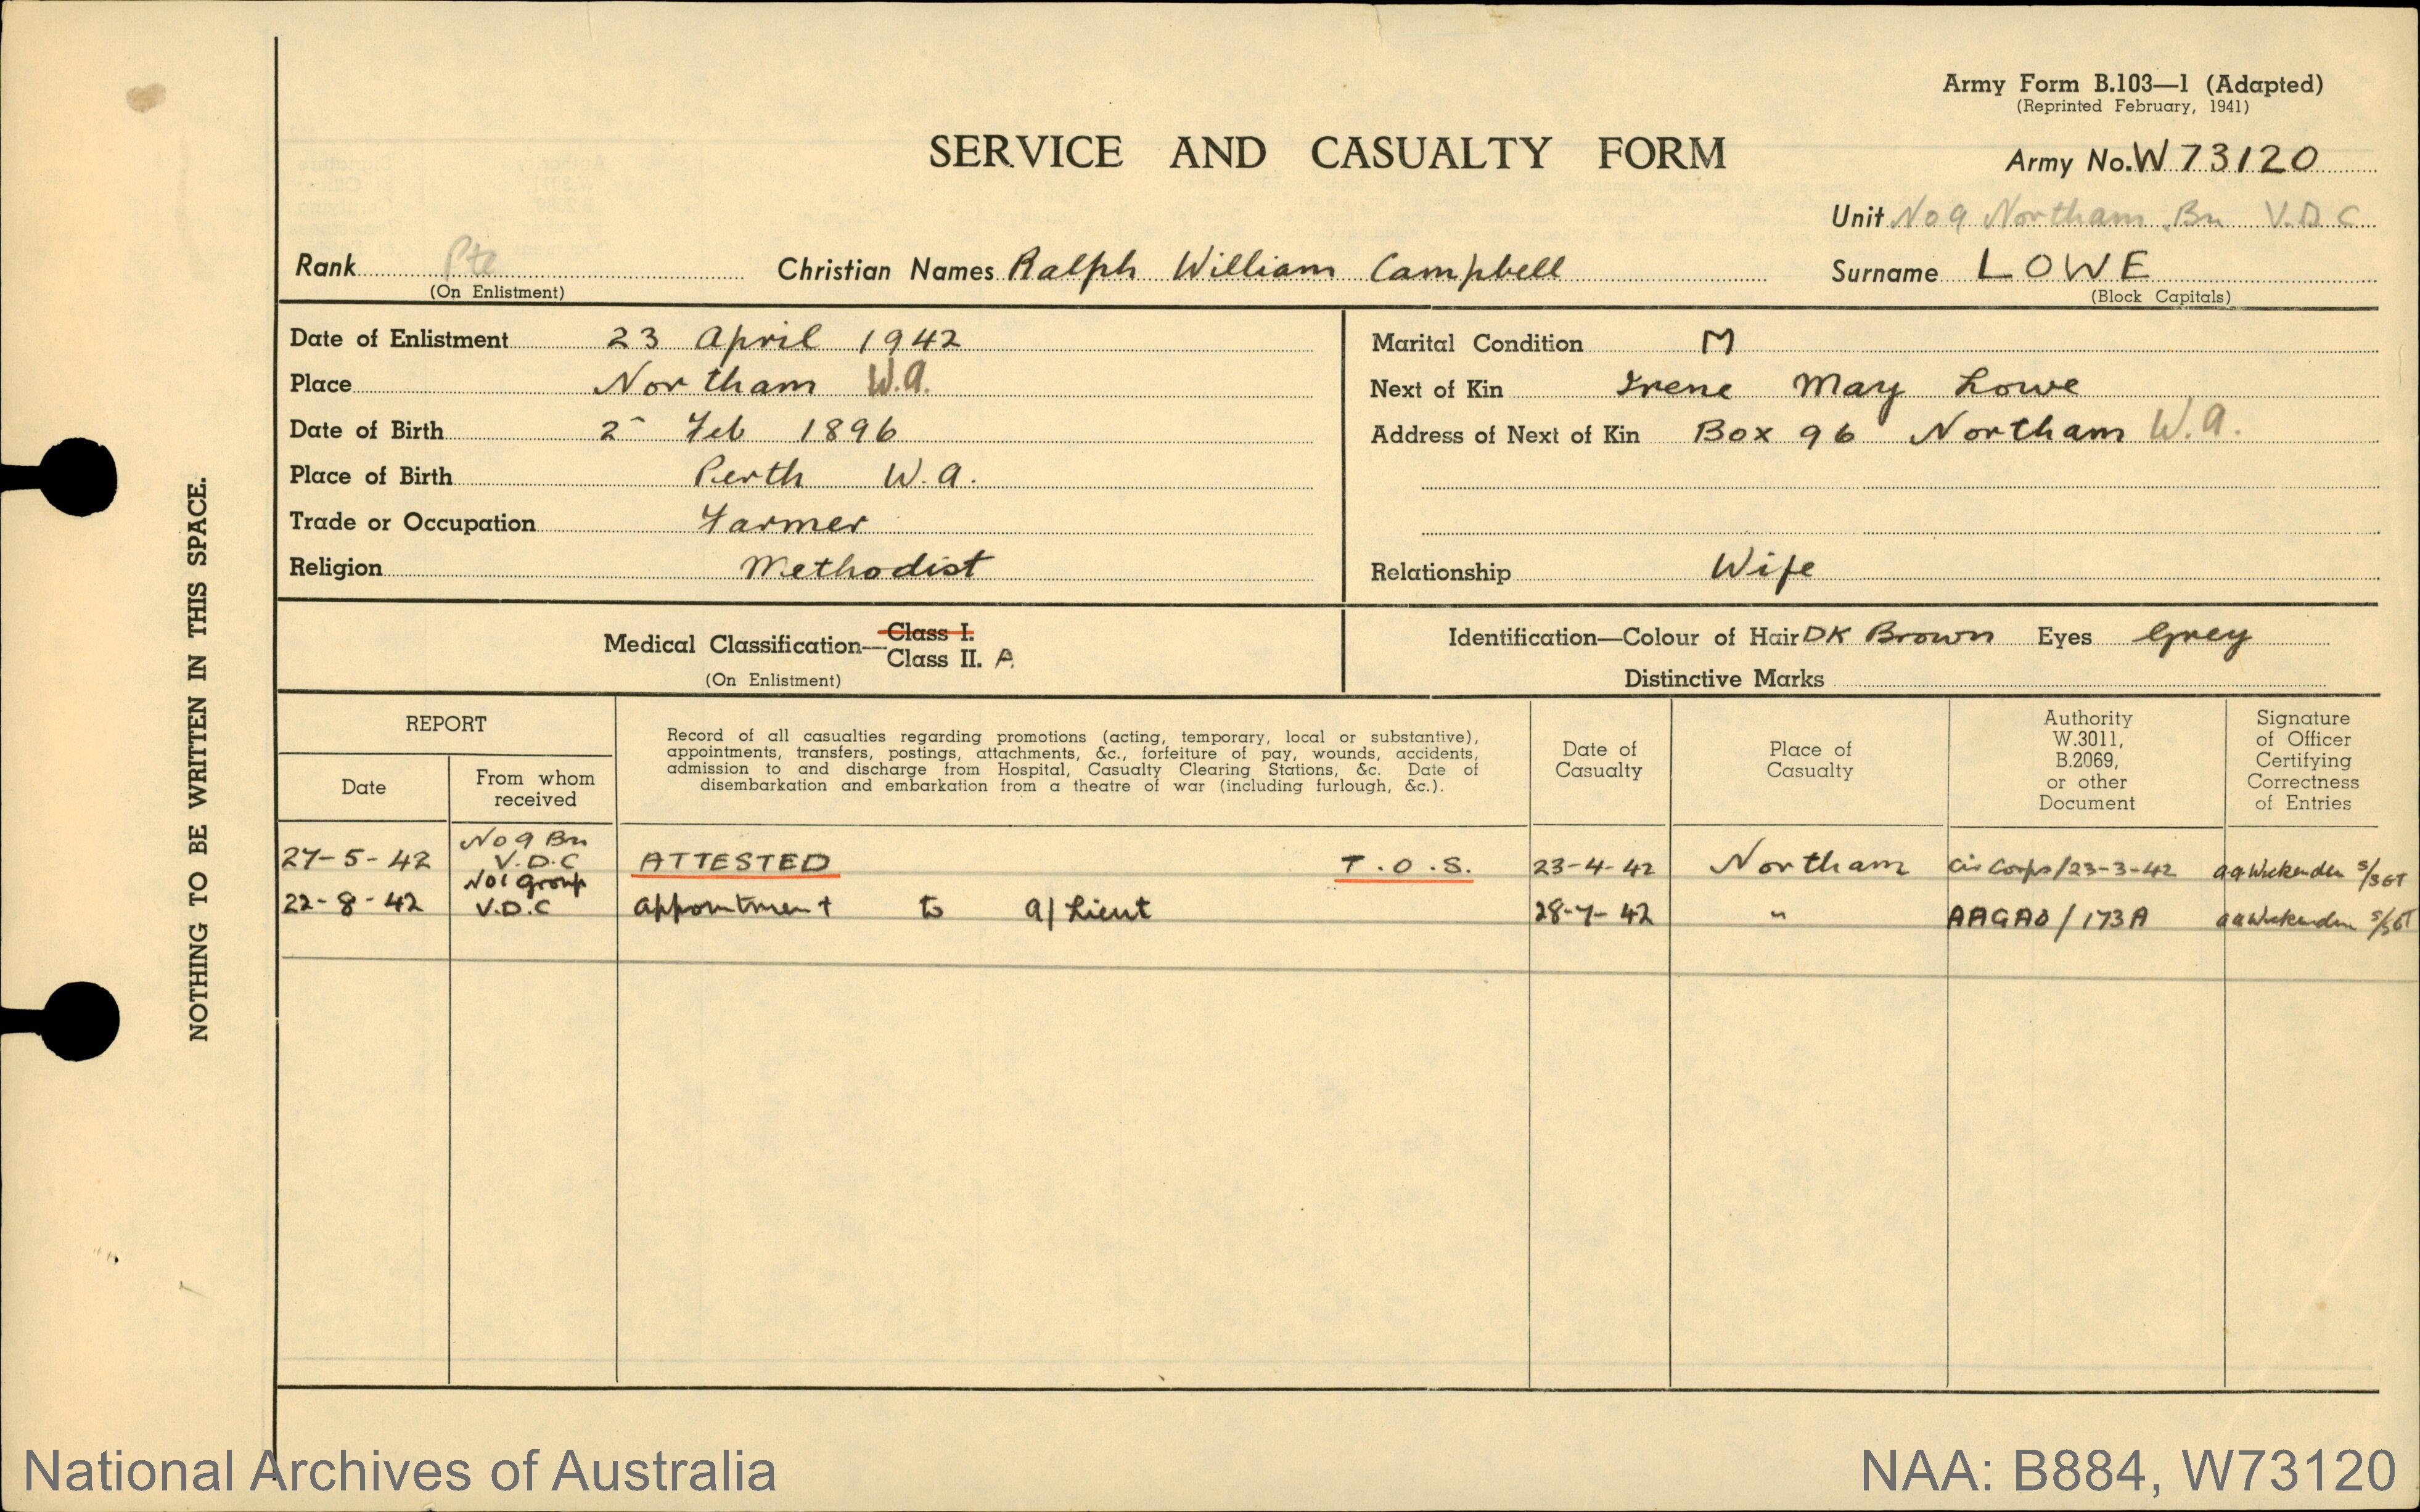 Army Form B.103—1 (Adapted)
(Reprinted February, 1941)
SERVICE AND CASUALTY FORM
Army No. W73120
Unit No 9 Northam Bn V.D.C
Rank Pte Christian Names Ralph William Campbell Surname LOWE
(On Enlistment) (Block Capitals)
Date of Enlistment 23 April 1942
Place Northam W.A.
Date of Birth 2 Feb 1896
Place of Birth Perth W.A.
Trade or Occupation Farmer
Religion Methodist
Marital Condition M
Next of Kin Irene May Lowe
Address of Next of Kin Box 96 Northam W.A.
Relationship Wife
Medical Classification— Class I.
Class II. A
(On Enlistment)
Identification—Colour of Hair DK Brown Eyes Grey
Distinctive Marks
REPORT
Date
From whom
received
Record of all casualties regarding promotions (acting, temporary, local or substantive),
appointments, transfers, postings, attachments, &c., forfeiture of pay, wounds, accidents,
admission to and discharge from Hospital, Casualty Clearing Stations, &c. Date of
disembarkation and embarkation from a theatre of war (including furlough, &c.).
Date of
Casualty
Place of
Casualty
Authority
W.3011,
B.2069,
or other
Document
Signature
of Officer
Certifying
Correctness
of Entries
No 9 Bn
27-5-42 V.D.C ATTESTED T.O.S. 23-4-42 Northam Corps/23-3-42 S/SGT
No 1 Group
22-8-42 V.D.C appointment to A/Lieut 28-7-42 " AAGAO/173A S/SGT
NOTHING TO BE WRITTEN IN THIS SPACE.
National Archives of Australia
NAA: B884, W73120